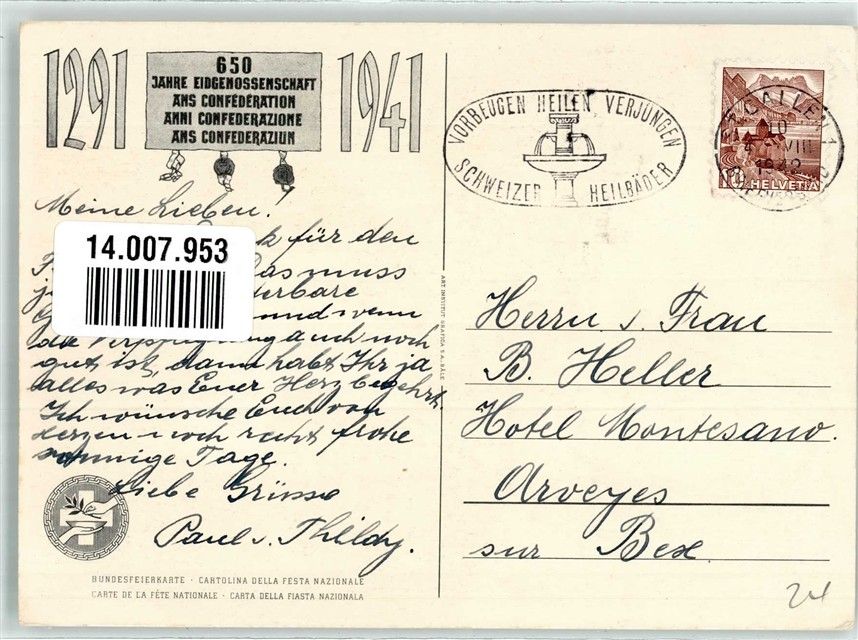 1291
650
JAHRE EIDGENOSSENSCHAFT
ANS CONFÉDÉRATION
ANNI CONFEDERAZIONE
ANS CONFEDERAZIUN
1941
VORBEUGEN HEILEN VERJÜNGEN
SCHWEIZER HEILBÄDER
ST. GALLEN 1
10
VIII
1942
10 HELVETIA
Meine Lieben!
für den
14.007.953
das muss
und wenn
die Verpflegung auch noch
gut ist, dann habt Ihr ja
alles was Euer Herz begehrt.
Ich wünsche Euch von
Herzen noch recht frohe
sonnige Tage.
Liebe Grüsse
Paul u. Thildy.
ART. INSTITUT GRAFICA S.A. BÂLE
Herrn u. Frau
B. Heller
Hotel Montesano.
Arveyes
sur Bex
BUNDESFEIERKARTE · CARTOLINA DELLA FESTA NAZIONALE
CARTE DE LA FÊTE NATIONALE · CARTA DELLA FIASTA NAZIONALA